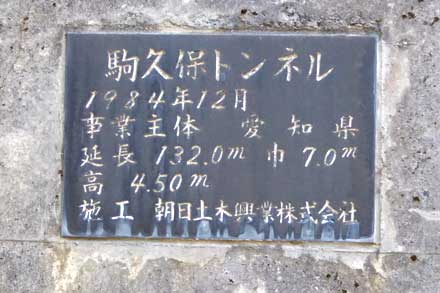 駒久保トンネル
1984年12月
事業主体 愛知県
延長 132.0m 巾 7.0m
高 4.50m
施工 朝日土木興業株式会社